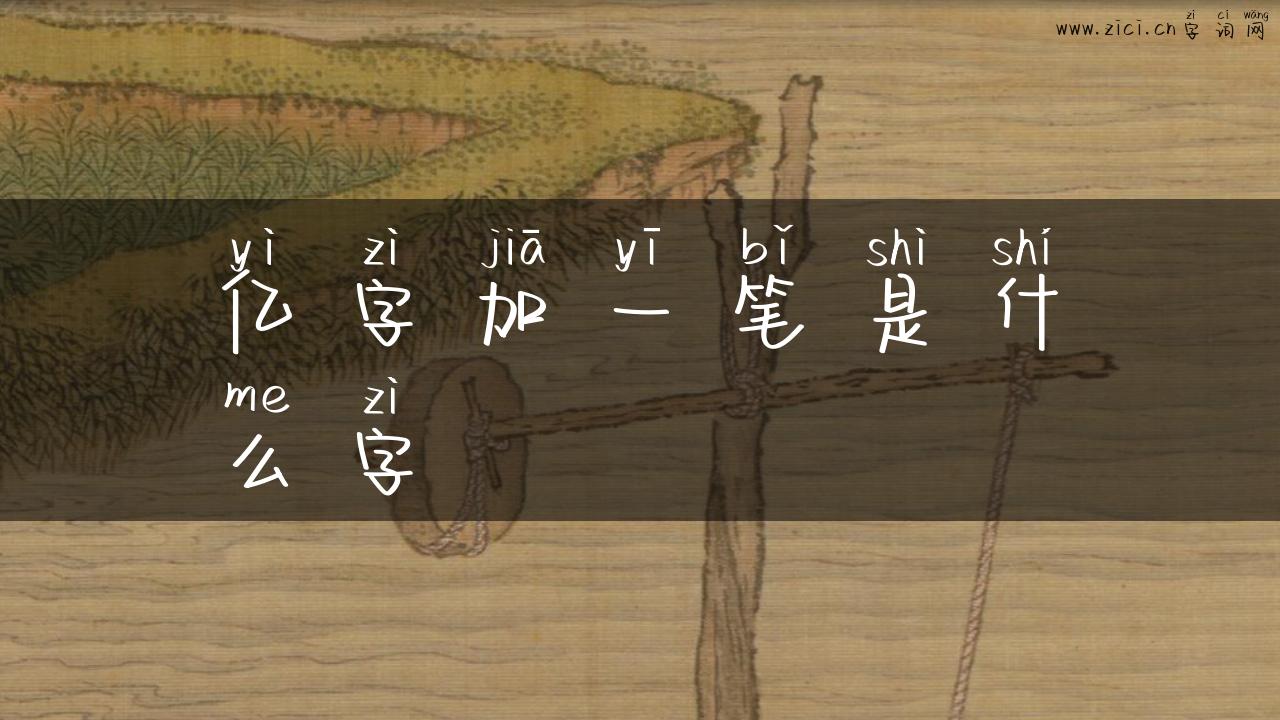 zì cí wǎng
www.zici.cn 字词网
yì zì jiā yī bǐ shì shí
亿字加一笔是什
me zì
么字